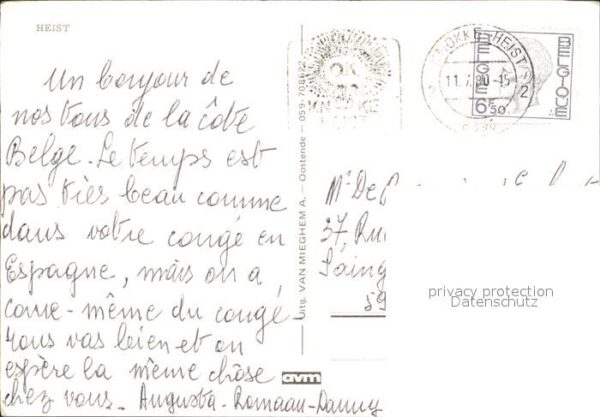 HEIST
Un bonjour de
nos tous de la côte
Belge. Le temps est
pas très beau comme
dans votre congé en
Espagne, mais on a
come-même du congé.
vous vas bien et on
espère la même chôse
chez vous. Augusta-Romaan-Danny
Uitg. VAN MIEGHEM A. - Oostende - 059-708662
avm
KNOKKE-HEIST
11.7.80-15
2
BELGIE
BELGIQUE
6F50
Mr De
37, Rue
59
privacy protection
Datenschutz